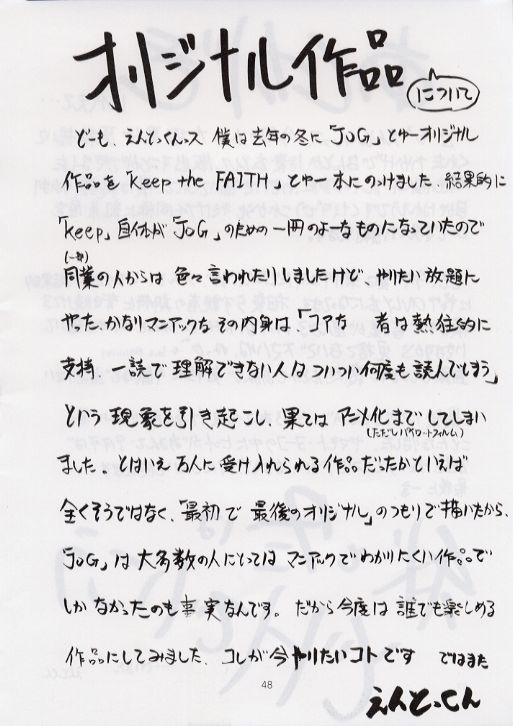 オリジナル作品
について
どーも、えんどっくんっス 僕は去年の冬に「JoG」とゆーオリジナル
作品を「Keep the FAITH」とゆー本にのっけました、結果的に
「Keep」自体が「JoG」のための一冊のよーなものになっていたので
(一部)
同業の人からは 色々言われたりしましたけど、やりたい放題に
やった、かなりマニアックな その内身は「コアな 者は熱狂的に
支持、一読で理解できない人はついつい何度も読んでしまう」
という現象を引き起こし、果てはアニメ化までしてしまい
(ただしパイロットフィルム)
ました。とはいえ万人に受け入れられる作品だったかといえば
全くそうではなく、「最初で最後のオリジナル」のつもりで描いたから、
「JoG」は大多数の人にとっては マニアックでわかりにくい作品で
しかなかったのも事実なんです。だから今度は誰でも楽しめる
作品にしてみました、コレが今やりたいコトです ではまた
48